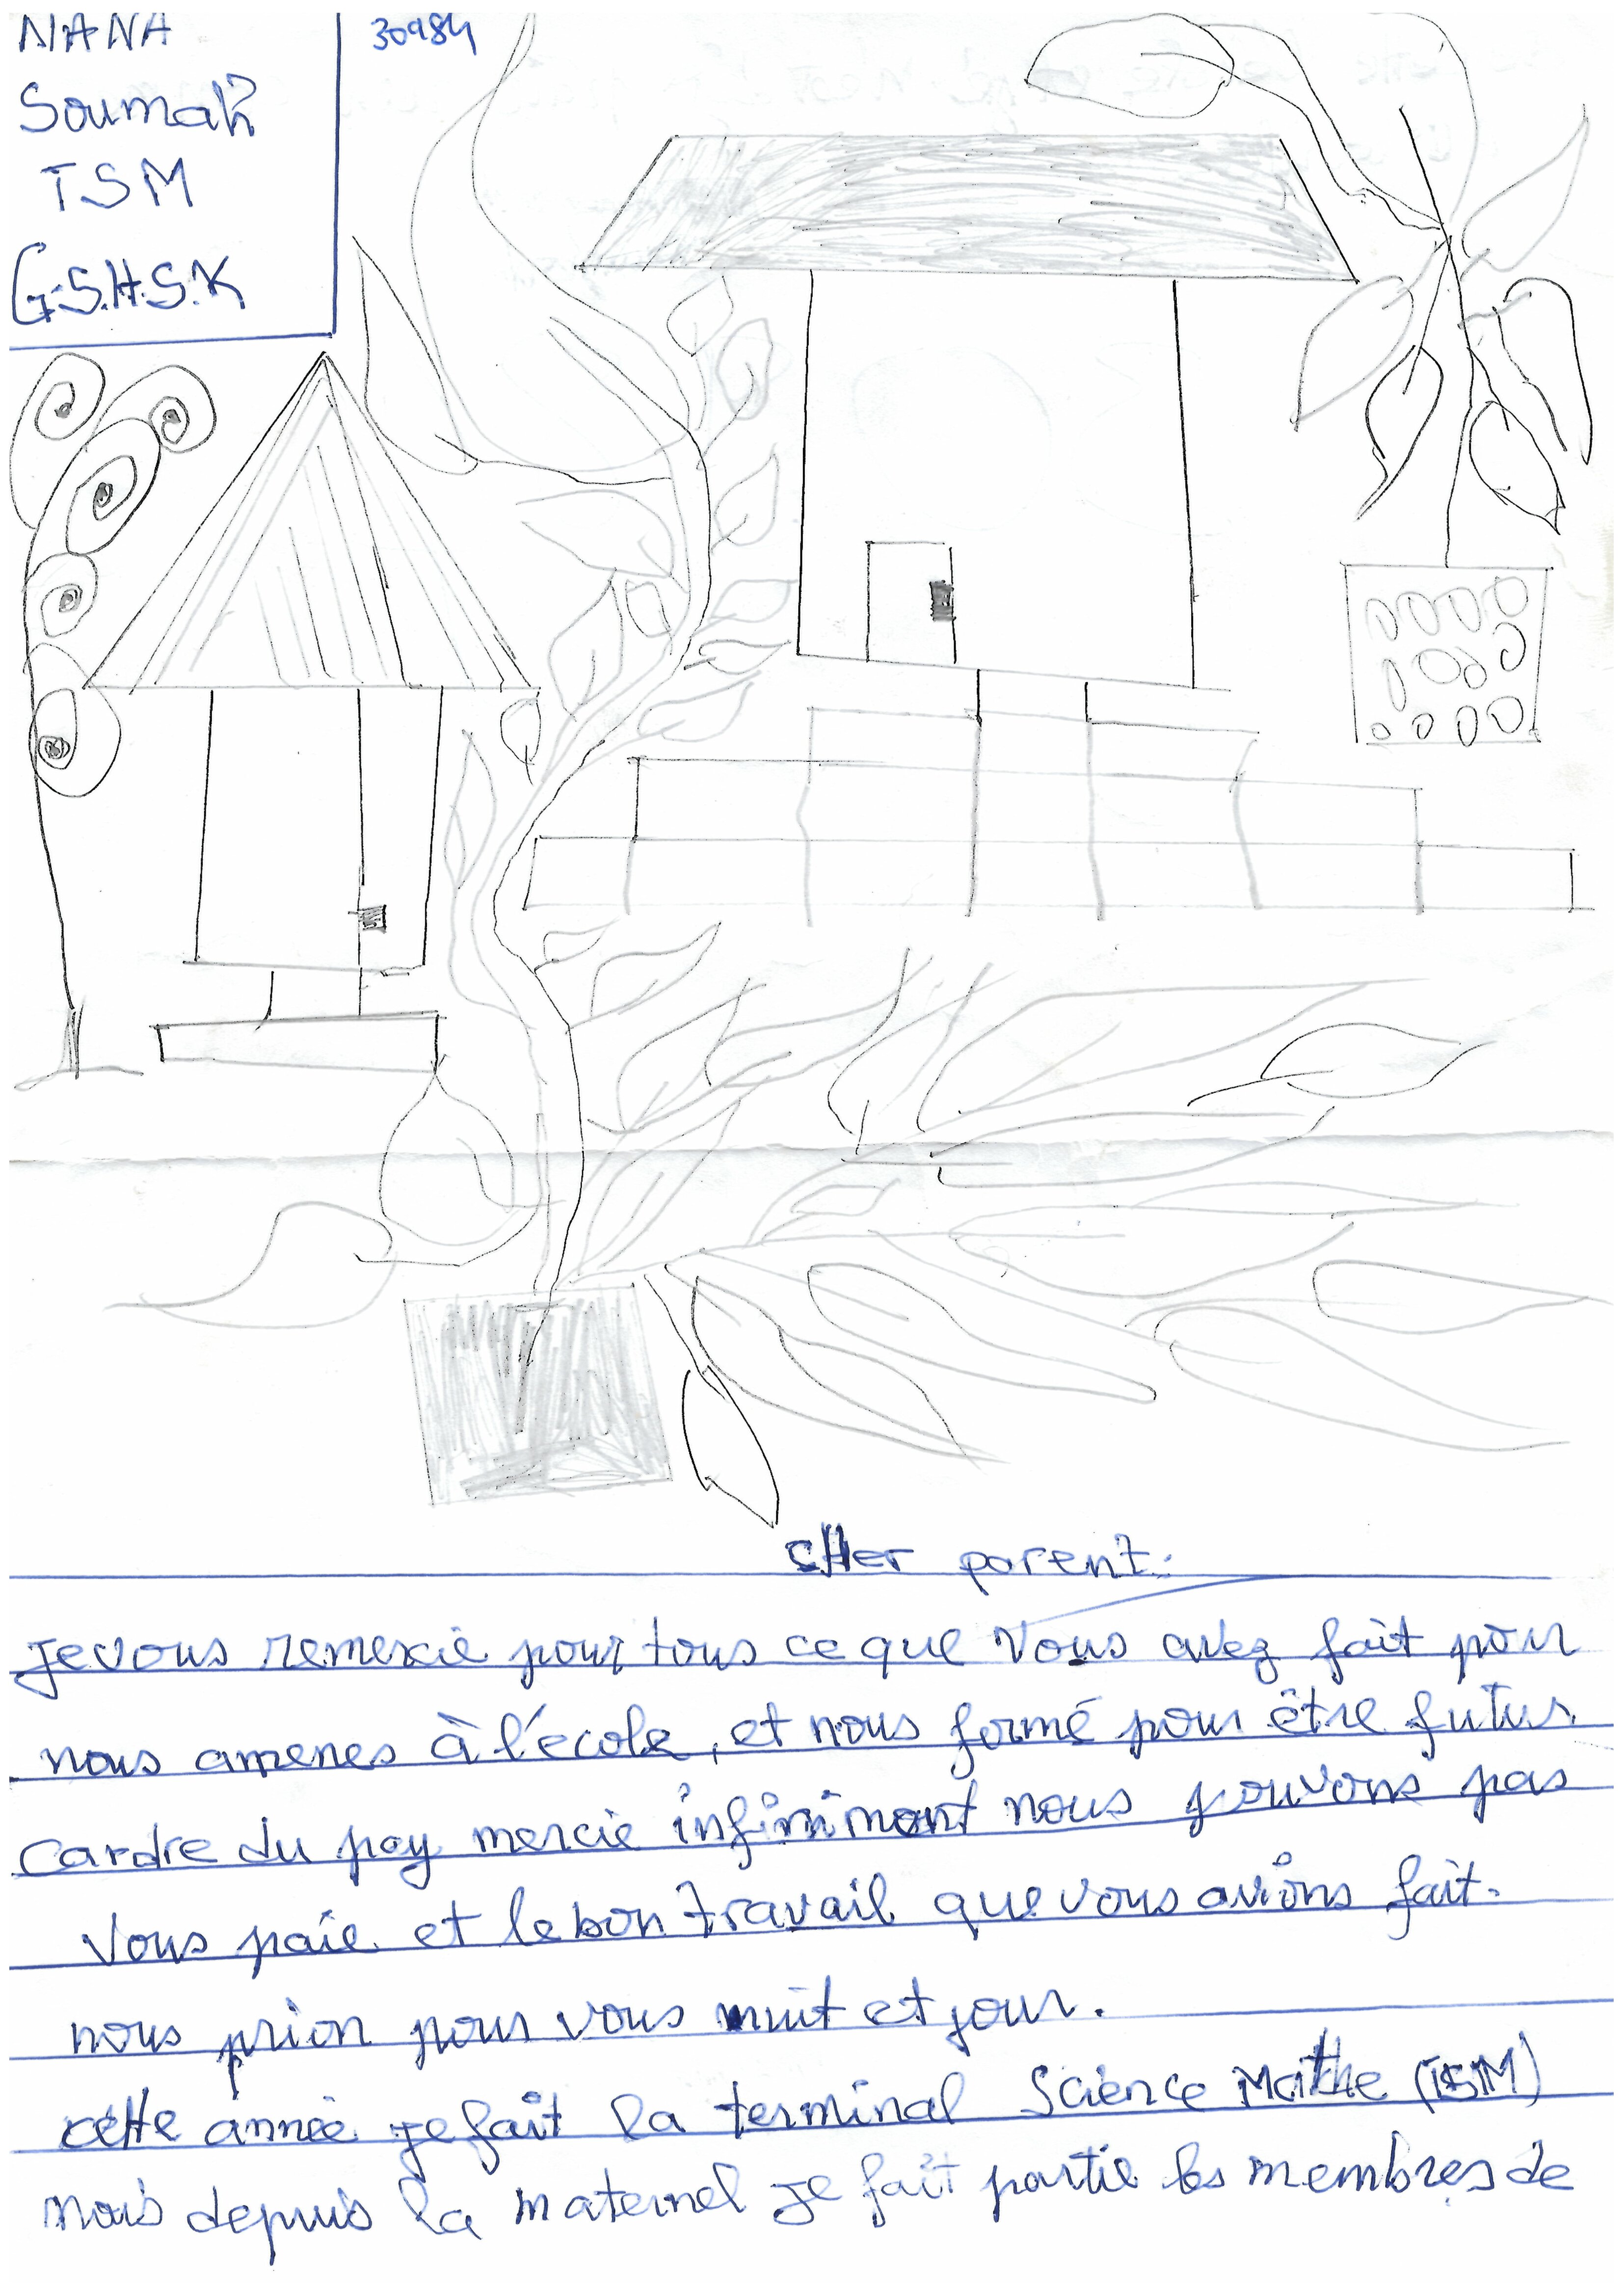 NANA
30984
Soumah
TSM
G.S.H.S.K
cHer parent:
je vous remercie pour tous ce que vous avez fait pour
nous amenes à l'école, et nous formé pour être futur
cardre du pay mercie infiniment nous pouvons pas
vous paie et le bon travail que vous avions fait.
nous prion pour vous nuit et jour.
cette année je fait la terminal Science Mathe (TSM)
mais depuis la maternel je fait partie les membres de